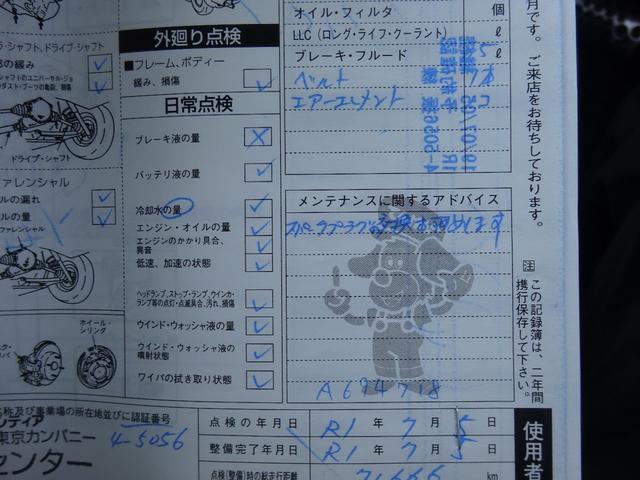 外廻り点検
■フレーム、ボディー
緩み、損傷
日常点検
ブレーキ液の量
バッテリ液の量
冷却水の量
エンジン・オイルの量
エンジンのかかり具合、
異音
低速、加速の状態
ヘッドランプ、ストップ・ランプ、ウインカ・
ランプ等の点灯・点滅具合、汚れ、損傷
ウインド・ウォッシャ液の量
ウインド・ウォッシャ液の
噴射状態
ワイパの拭き取り状態
ラ・シャフト、ドライブ・シャフト
部の緩み
シャフトのユニバーサル・ジョ
ダスト・ブーツの亀裂、損傷
ドライブ・シャフト
ファレンシャル
ルの漏れ
ルの量
ファレンシャル
ホイール・
シリンダ
オイル・フィルタ 個
LLC(ロング・ライフ・クーラント) ℓ
ブレーキ・フルード ℓ
ベルト
エアーエレメント
メンテナンスに関するアドバイス
スパークプラグ交換お勧めします
A694718
月です。ご来店をお待ちしております。
注 この記録簿は、二年間
携行保存して下さい。
名称及び事業場の所在地並びに認証番号
ンディア
東京カンパニー
4-5056
センター
点検の年月日 R1年7月5日
整備完了年月日 R1年7月5日
点検(整備)時の総走行距離 71666 km
使用者